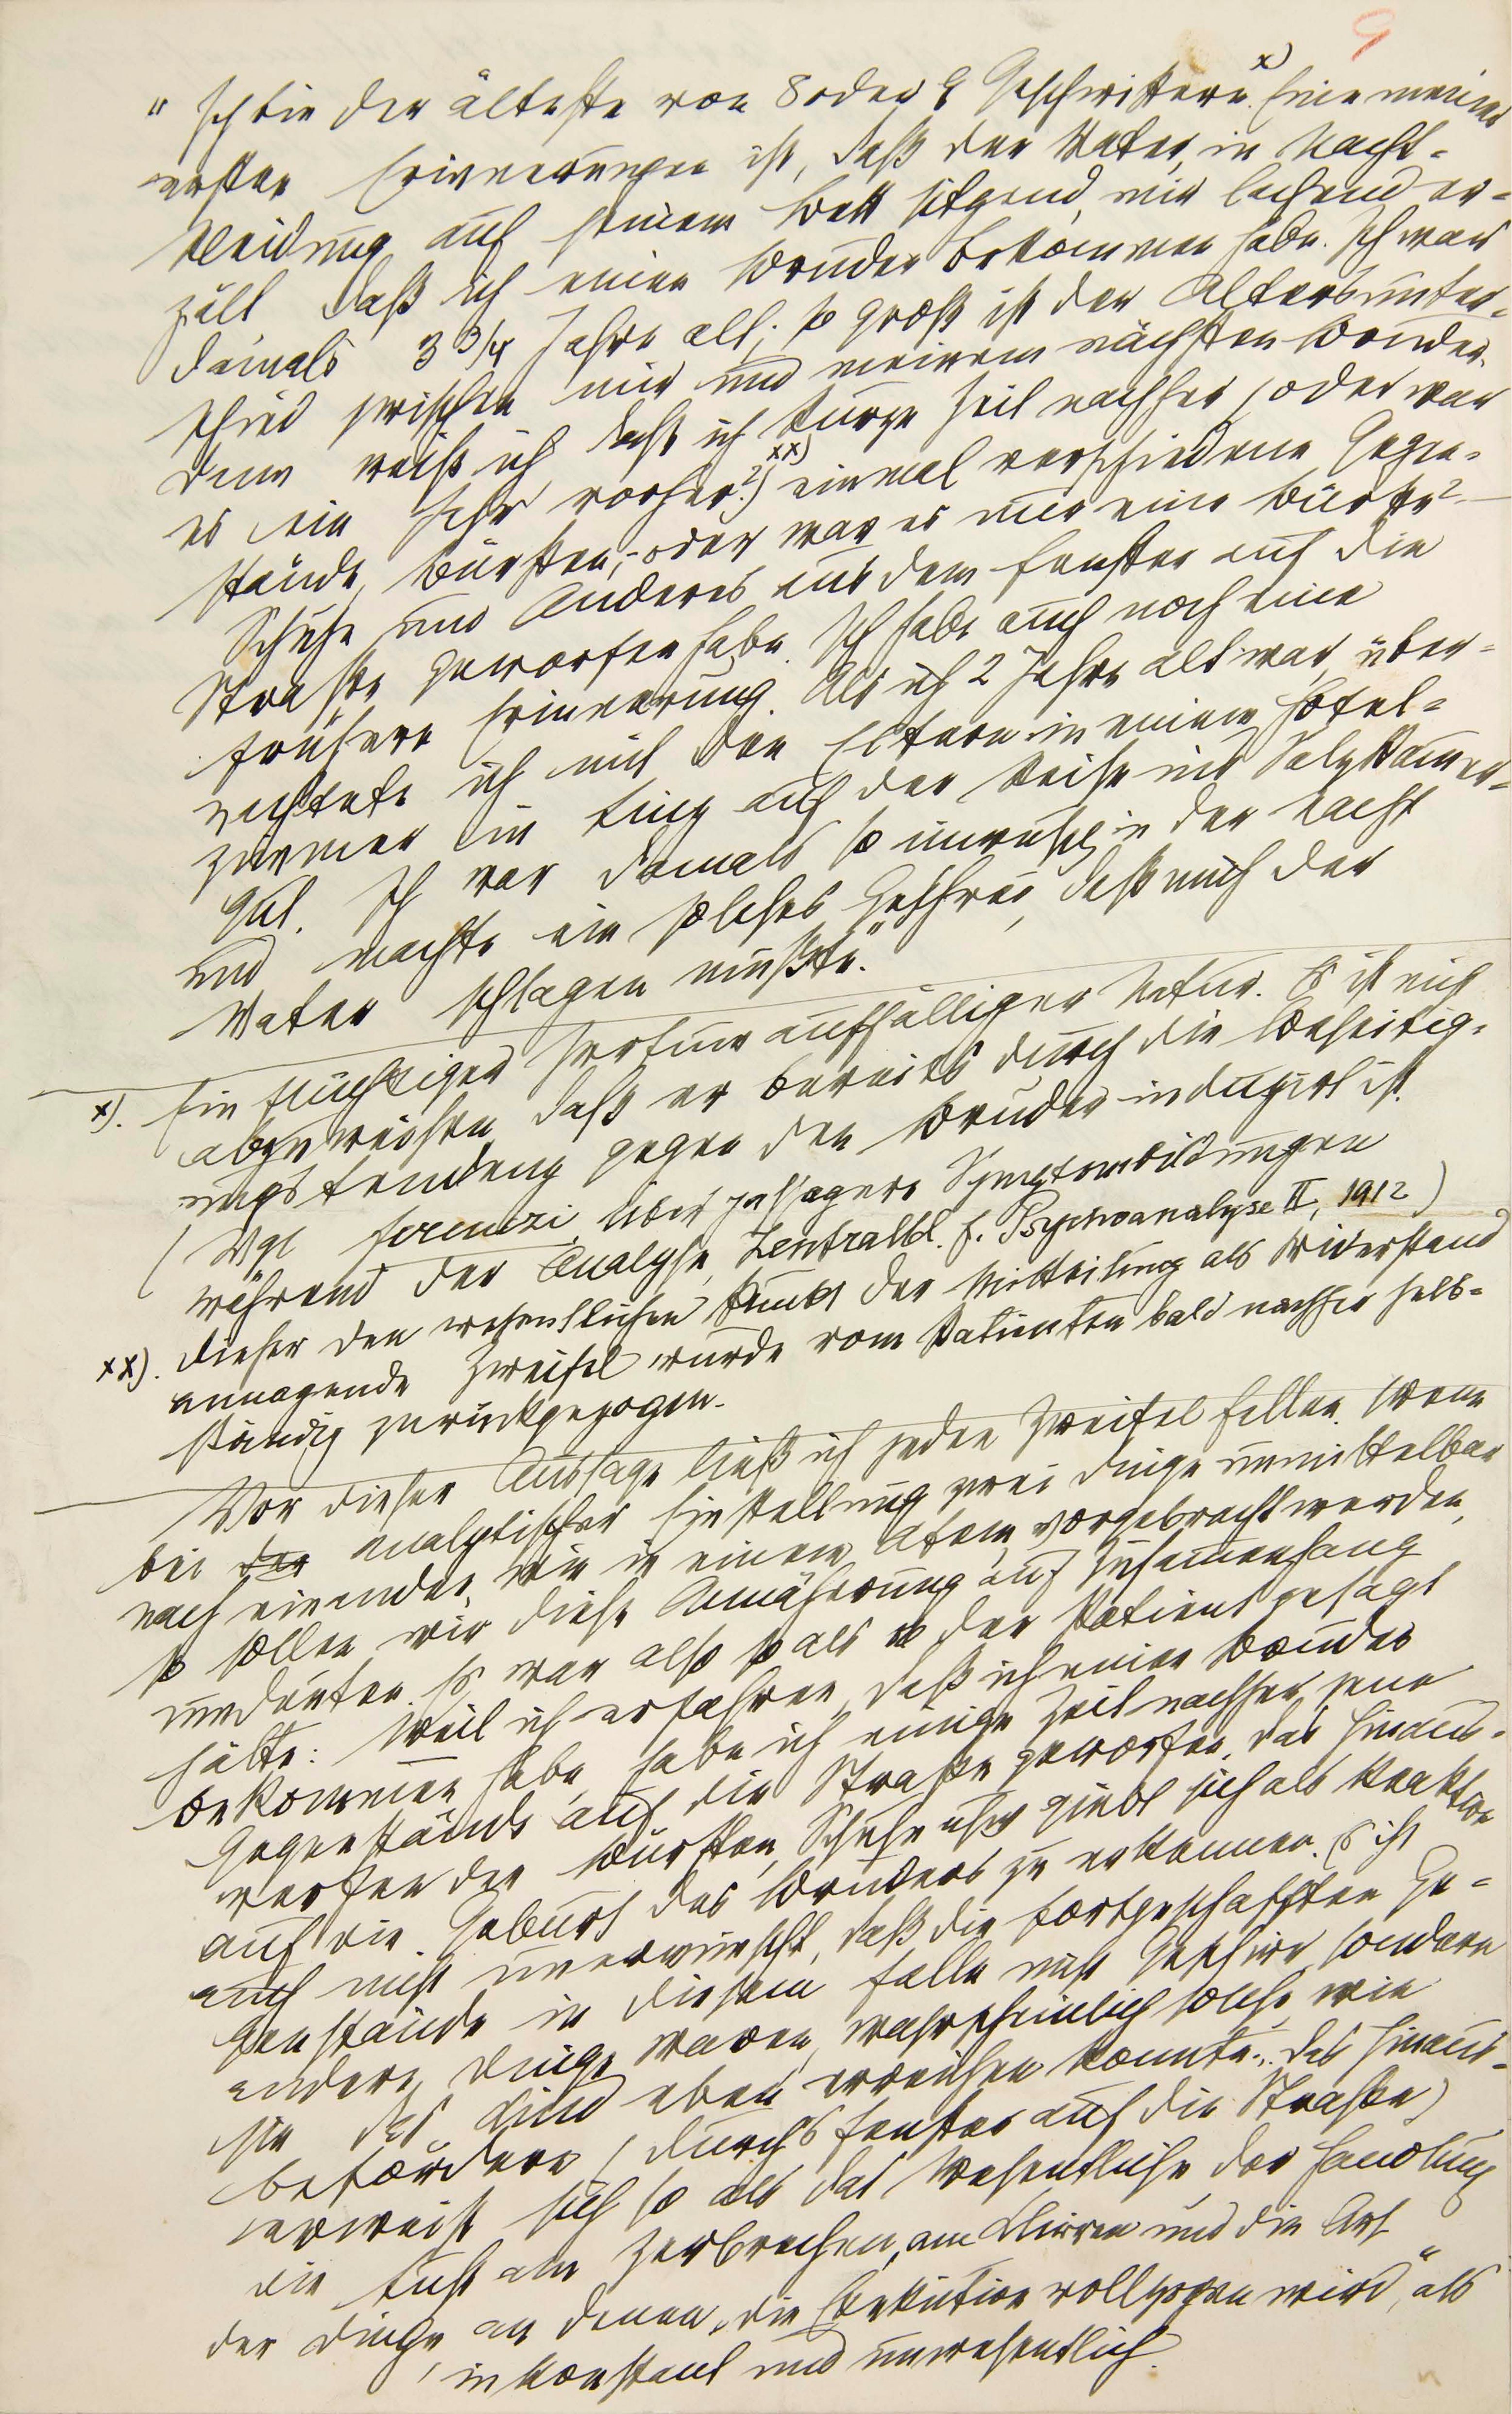 9
„Ich bin der älteste von 8 oder 9 Geschwistern. x) Eine meiner
ersten Erinnerungen ist, daß der Vater, in Nacht-
kleidung auf seinem Bett sitzend, mir lachend er-
zält, daß ich einen Bruder bekommen habe. Ich war
damals 3 3/4 Jahre alt; so groß ist der Altersunter-
schied zwischen mir und meinem nächsten Bruder.
Dann weiß ich, daß ich kurze Zeit nachher (oder war
es ein Jahr vorher?) xx) einmal verschiedene Gegen-
stände, Bürsten, – oder war es nur eine Bürste? –
Schuhe und Anderes aus dem Fenster auf die
Straße geworfen habe. Ich habe auch noch eine
frühere Erinnerung. Als ich 2 Jahre alt war, über-
nachtete ich mit den Eltern in einem Hotel-
zimmer in Linz auf der Reise ins Salzkammer-
gut. Ich war damals so unruhig in der Nacht
und machte ein solches Geschrei, daß mich der
Vater schlagen mußte.“
x). Ein flüchtiger Irrtum auffälliger Natur. Es ist nicht
abzuweisen, daß er bereits durch die Beseitig-
ungstendenz gegen den Bruder induzirt ist.
(Vgl Ferenczi, Über passagere Symptombildungen
während der Analyse, Zentralbl. f. Psychoanalyse II, 1912)
xx). Dieser den wesentlichen Punkt der Mitteilung als Widerstand
annagende Zweifel wurde vom Patienten bald nachher selb-
ständig zurückgezogen.
Vor dieser Aussage ließ ich jeden Zweifel fallen. Wenn
bei der analytischer Einstellung zwei Dinge unmittelbar
nach einander, wie in einem Atem vorgebracht werden,
so sollen wir diese Annäherung auf Zusammenhang
umdeuten. Es war also so als ob der Patient gesagt
hätte: Weil ich erfahren, daß ich einen Bruder
bekommen habe, habe ich einige Zeit nachher jene
Gegenstände auf die Straße geworfen. Das Hinaus-
werfen der Bürsten, Schuhe usw giebt sich als Reaktion
auf die Geburt des Bruders zu erkennen. Es ist
auch nicht unerwünscht, daß die fortgeschafften Ge-
genstände in diesem Falle nicht Geschirr, sondern
andere Dinge waren, wahrscheinlich solche, wie
sie das Kind eben erreichen konnte... Das Hinaus-
befördern (durchs Fenster auf die Straße)
erweist sich so als das Wesentliche der Handlung,
die Lust am Zerbrechen, am Klirren und die Art
der Dinge, an denen „die Exekution vollzogen wird,“ als
inkonstant und unwesentlich.